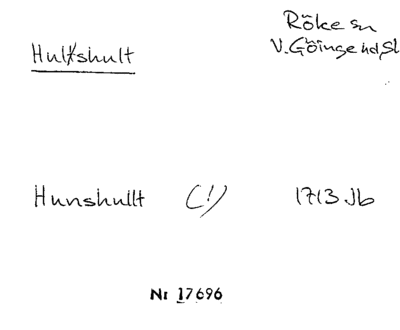 Röke sn
Hultshult V. Göinge hd, Sk
Hunshullt (!) 1713 Jb
Nr 17696